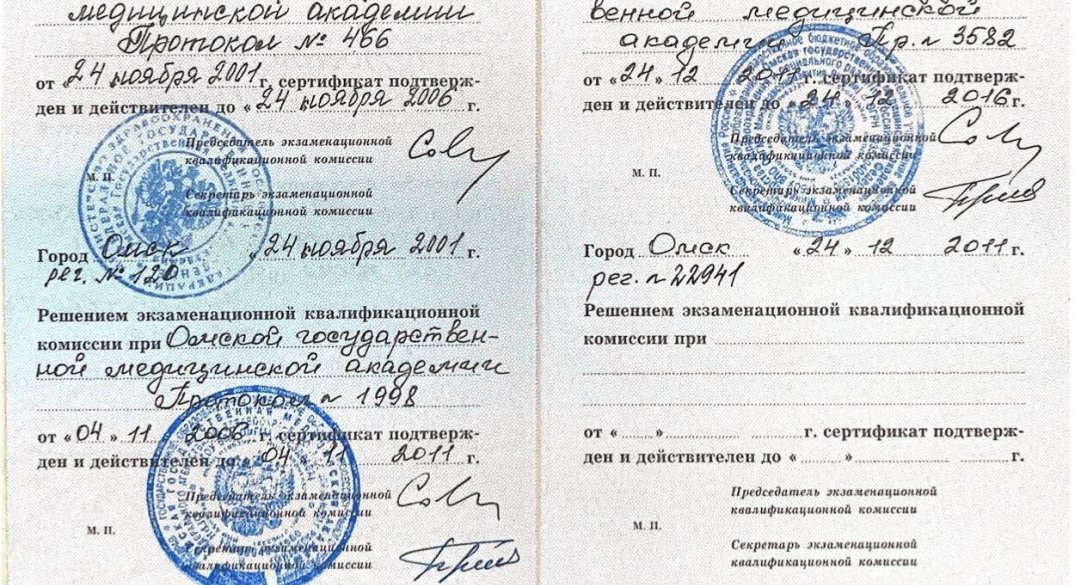 медицинской академии
Протокол № 466
от « 24 ноября 2001 г. сертификат подтверж-
ден и действителен до « 24 ноября 2006 г.
Председатель экзаменационной
квалификационной комиссии
М. П.
Секретарь экзаменационной
квалификационной комиссии
Город Омск « 24 ноября 2001 г.
рег. № 120
Решением экзаменационной квалификационной
комиссии при Омской государствен-
ной медицинской академии
Протокол n 1998
от « 04 » 11 2006 г. сертификат подтверж-
ден и действителен до « 04 » 11 2011 г.
Председатель экзаменационной
квалификационной комиссии
М. П.
Секретарь экзаменационной
квалификационной комиссии
венной медицинской
академии Пр. n 3582
от « 24 » 12 2011 г. сертификат подтверж-
ден и действителен до « 24 » 12 2016 г.
Председатель экзаменационной
квалификационной комиссии
М. П.
Секретарь экзаменационной
квалификационной комиссии
Город Омск « 24 » 12 2011 г.
рег. n 22941
Решением экзаменационной квалификационной
комиссии при
от « » г. сертификат подтверж-
ден и действителен до « » г.
Председатель экзаменационной
квалификационной комиссии
М. П.
Секретарь экзаменационной
квалификационной комиссии